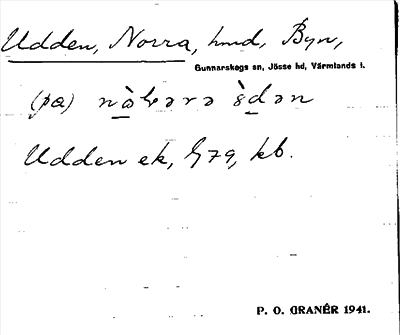 Udden, Norra, hmd, Byn,
Gunnarskogs sn, Jösse hd, Värmlands l.
(pa)
Udden ek, G79, kb.
P. O. GRANÉR 1941.